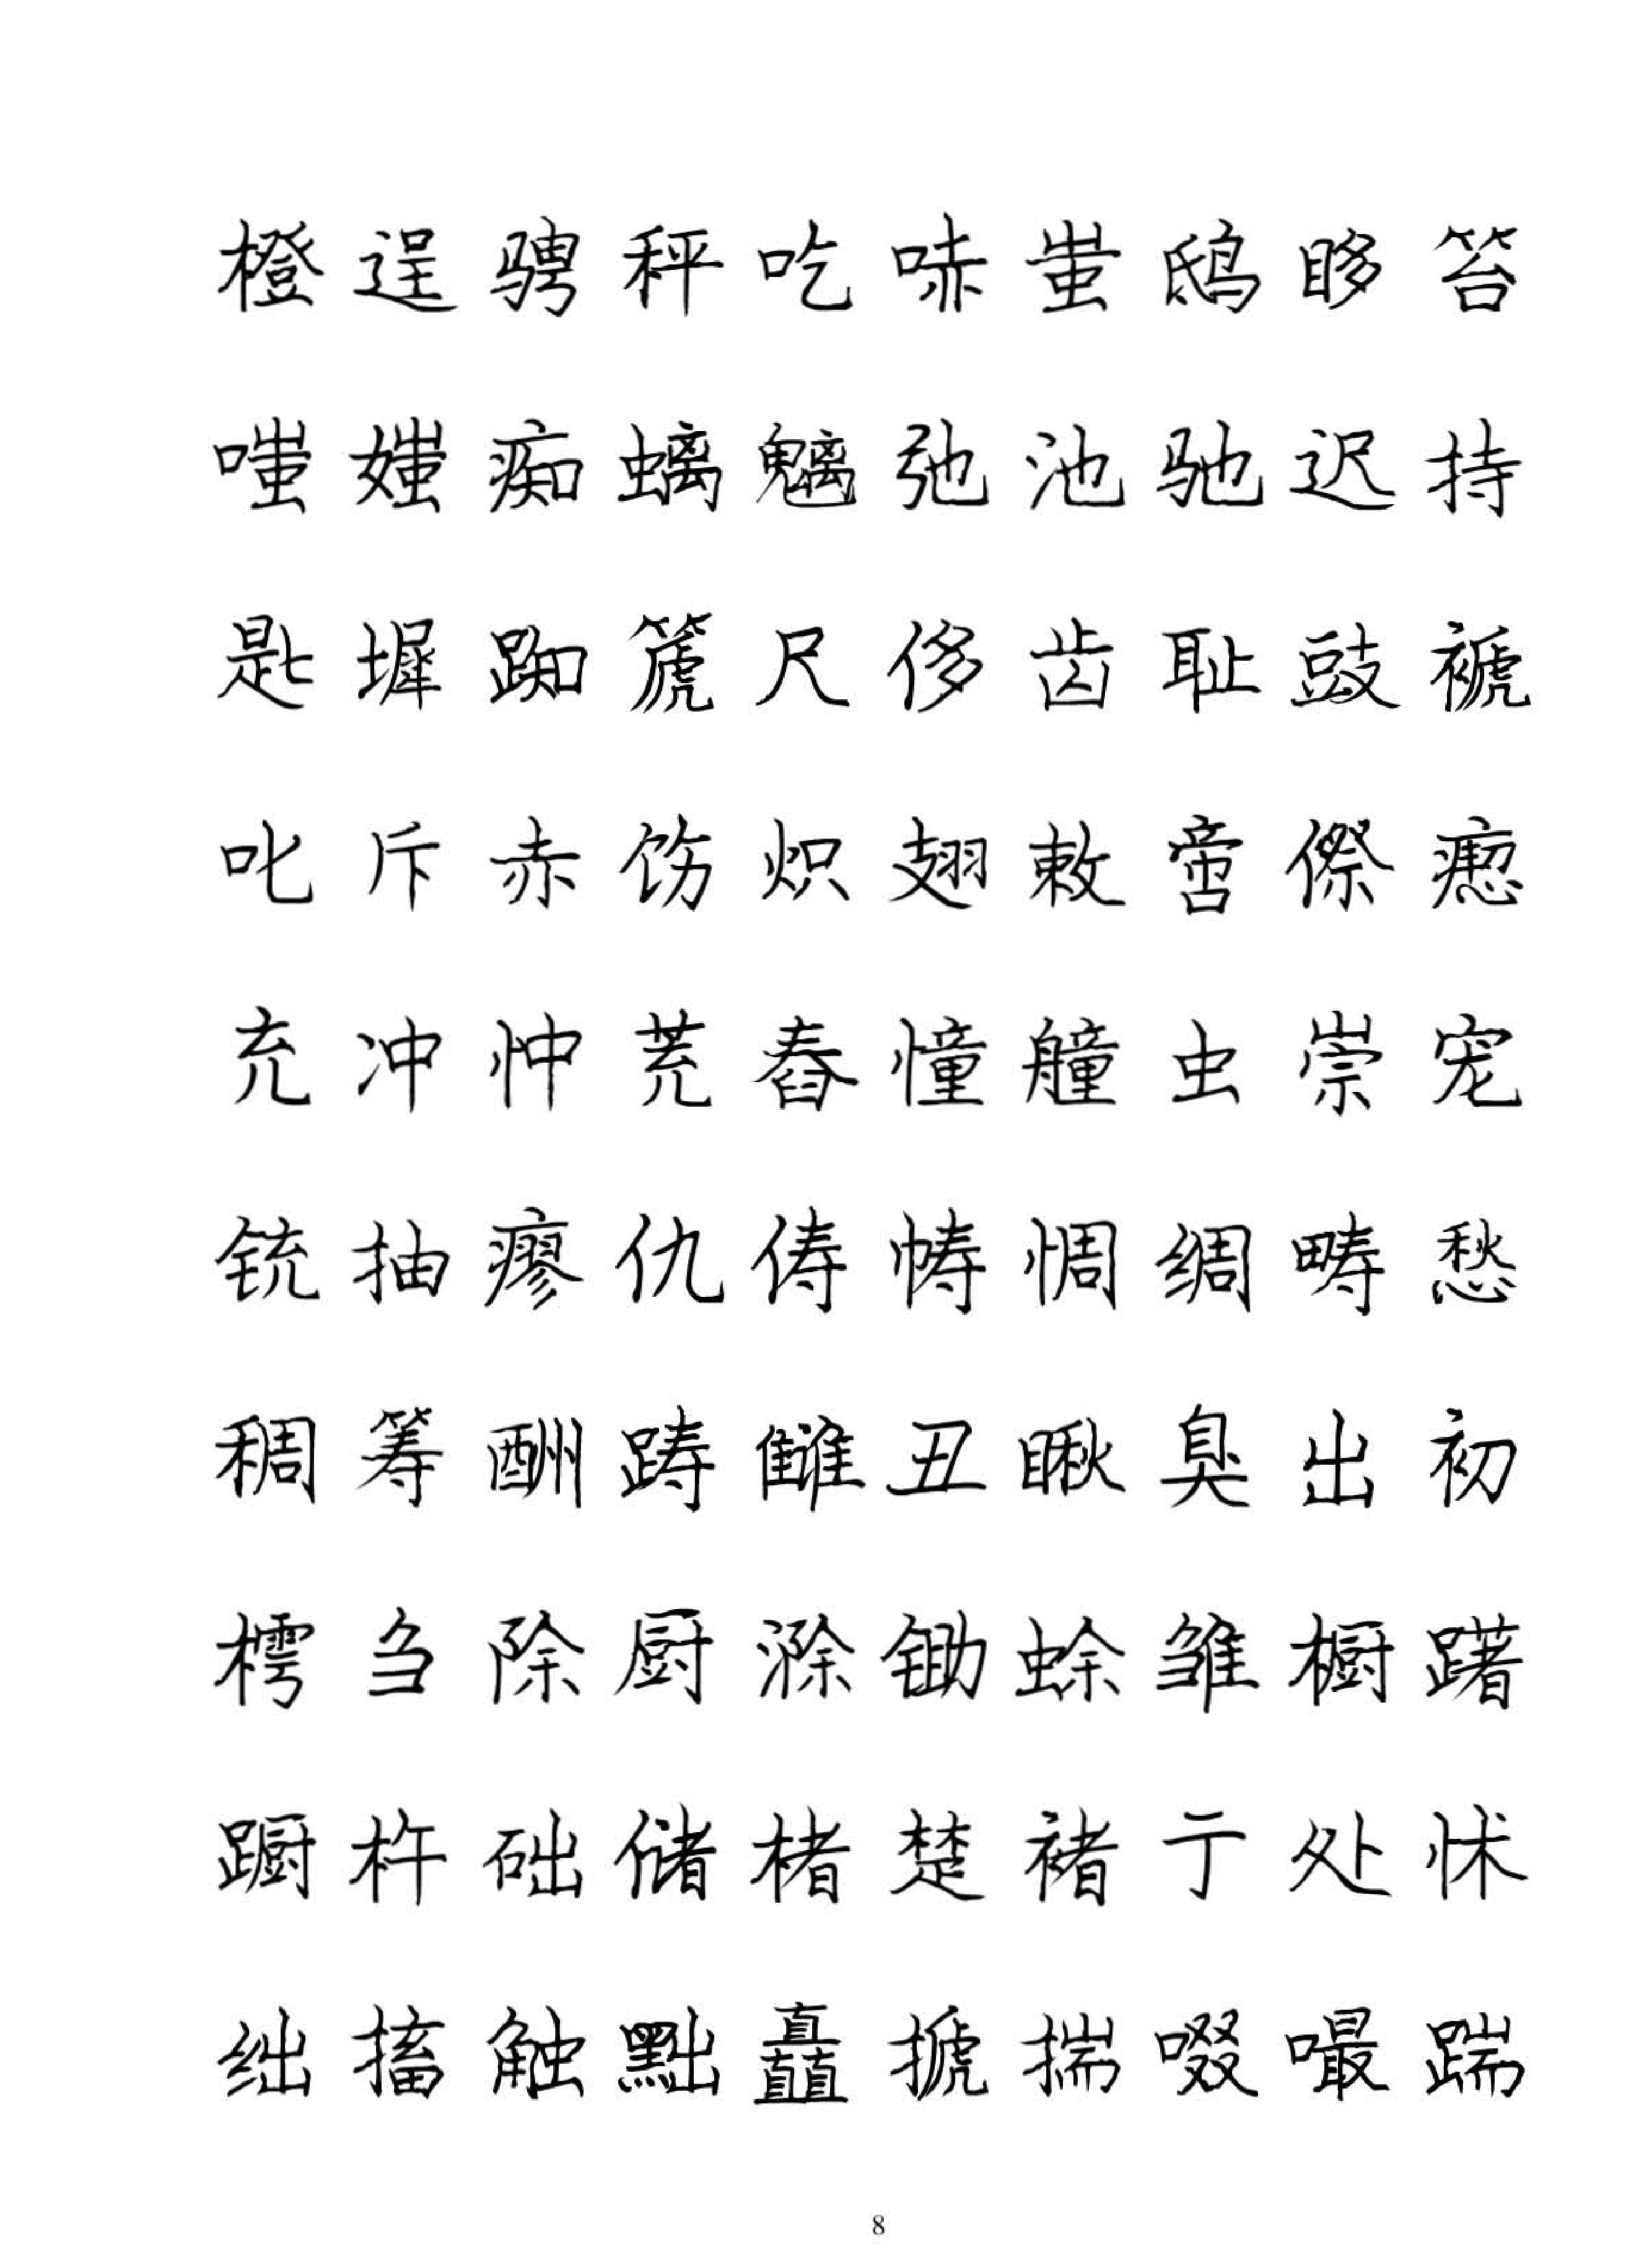 橙逞骋秤吃哧蚩鸱眵笞
嗤媸痴螭魑弛池驰迟持
匙墀踟篪尺侈齿耻豉褫
叱斥赤饬炽翅敕啻傺瘛
充冲忡茺舂憧艟虫崇宠
铳抽瘳仇俦帱惆绸畴愁
稠筹酬踌雠丑瞅臭出初
樗刍除厨滁锄蜍雏橱躇
蹰杵础储楮楚褚亍处怵
绌搐触黜矗搋揣啜嘬踹
8